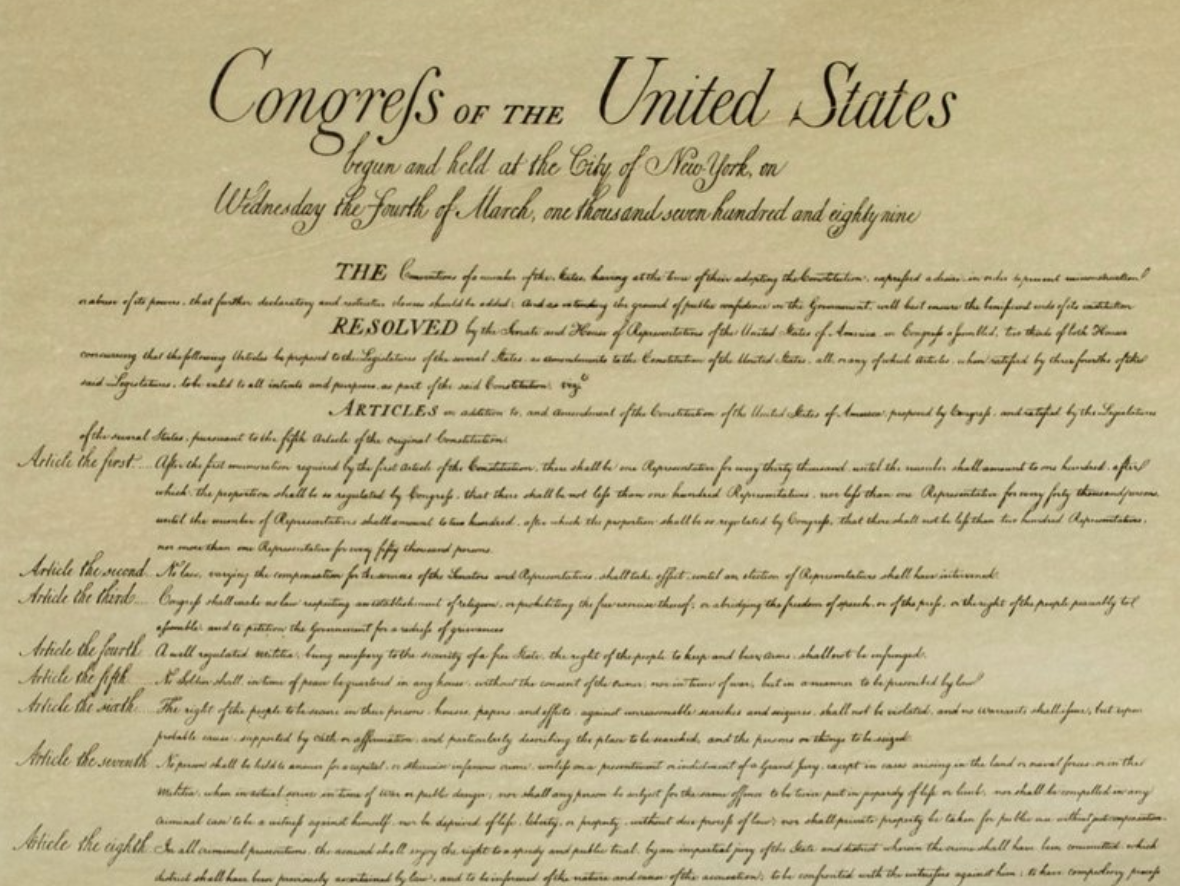 Congreſs OF THE United States
begun and held at the City of New-York, on
Wednesday the Fourth of March, one thousand seven hundred and eighty nine
THE Conventions of a number of the States, having at the time of their adopting the Constitution, expreſsed a desire, in order to prevent misconstruction
or abuse of its powers, that further declaratory and restrictive clauses should be added: And as extending the ground of public confidence in the Government, will best ensure the beneficent ends of its institution
RESOLVED by the Senate and House of Representatives of the United States of America, in Congreſs aſsembled, two thirds of both Houses
concurring, that the following Articles be proposed to the Legislatures of the several States, as amendments to the Constitution of the United States, all, or any of which Articles, when ratified by three fourths of the
said Legislatures, to be valid to all intents and purposes, as part of the said Constitution; vizt
ARTICLES in addition to, and Amendment of the Constitution of the United States of America, proposed by Congreſs, and ratified by the Legislatures
of the several States, pursuant to the fifth Article of the original Constitution.
Article the first... After the first enumeration required by the first Article of the Constitution, there shall be one Representative for every thirty thousand, until the number shall amount to one hundred, after
which, the proportion shall be so regulated by Congreſs, that there shall be not leſs than one hundred Representatives, nor leſs than one Representative for every forty thousand persons,
until the number of Representatives shall amount to two hundred, after which the proportion shall be so regulated by Congreſs, that there shall not be leſs than two hundred Representatives,
nor more than one Representative for every fifty thousand persons.
Article the second... No law, varying the compensation for the services of the Senators and Representatives, shall take effect, until an election of Representatives shall have intervened.
Article the third... Congreſs shall make no law respecting an establishment of religion, or prohibiting the free exercise thereof; or abridging the freedom of speech, or of the preſs, or the right of the people peaceably to
aſsemble, and to petition the Government for a redreſs of grievances.
Article the fourth. A well regulated Militia, being neceſsary to the security of a free State, the right of the people to keep and bear Arms, shall not be infringed.
Article the fifth... No Soldier shall, in time of peace be quartered in any house, without the consent of the owner, nor in time of war, but in a manner to be prescribed by law.
Article the sixth... The right of the people to be secure in their persons, houses, papers, and effects, against unreasonable searches and seizures, shall not be violated, and no Warrants shall iſsue, but upon
probable cause, supported by Oath or affirmation, and particularly describing the place to be searched, and the persons or things to be seized.
Article the seventh. No person shall be held to answer for a capital, or otherwise infamous crime, unleſs on a presentment or indictment of a Grand Jury, except in cases arising in the land or naval forces, or in the
Militia, when in actual service in time of War or public danger; nor shall any person be subject for the same offence to be twice put in jeopardy of life or limb, nor shall be compelled in any
criminal case to be a witneſs against himself, nor be deprived of life, liberty, or property, without due proceſs of law; nor shall private property be taken for public use without just compensation.
Article the eighth. In all criminal prosecutions, the accused shall enjoy the right to a speedy and public trial, by an impartial jury of the State and district wherein the crime shall have been committed, which
district shall have been previously ascertained by law, and to be informed of the nature and cause of the accusation; to be confronted with the witneſses against him; to have compulsory proceſs